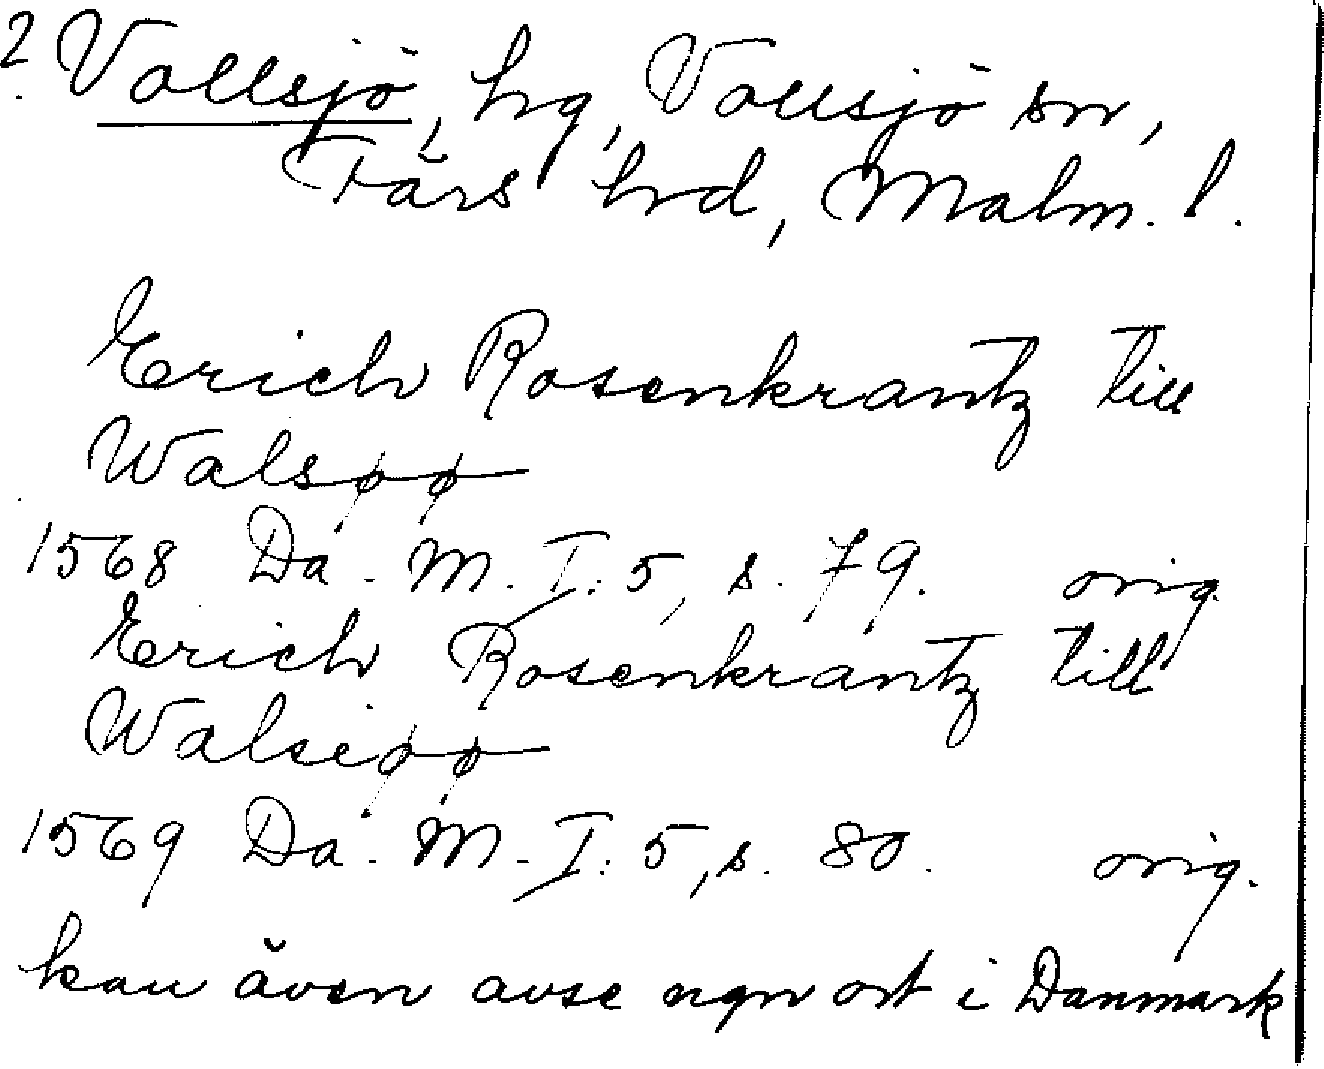 ? Vollsjö, hg, Vollsjö sn,
Färs hrd, Malm. l.
Erich Rosenkrantz till
Walsøø
1568 Da. M. I: 5, s. 79. orig.
Erich Rosenkrantz till
Walseøø
1569 Da. M. I: 5, s. 80. orig.
kan även avse ngn ort i Danmark